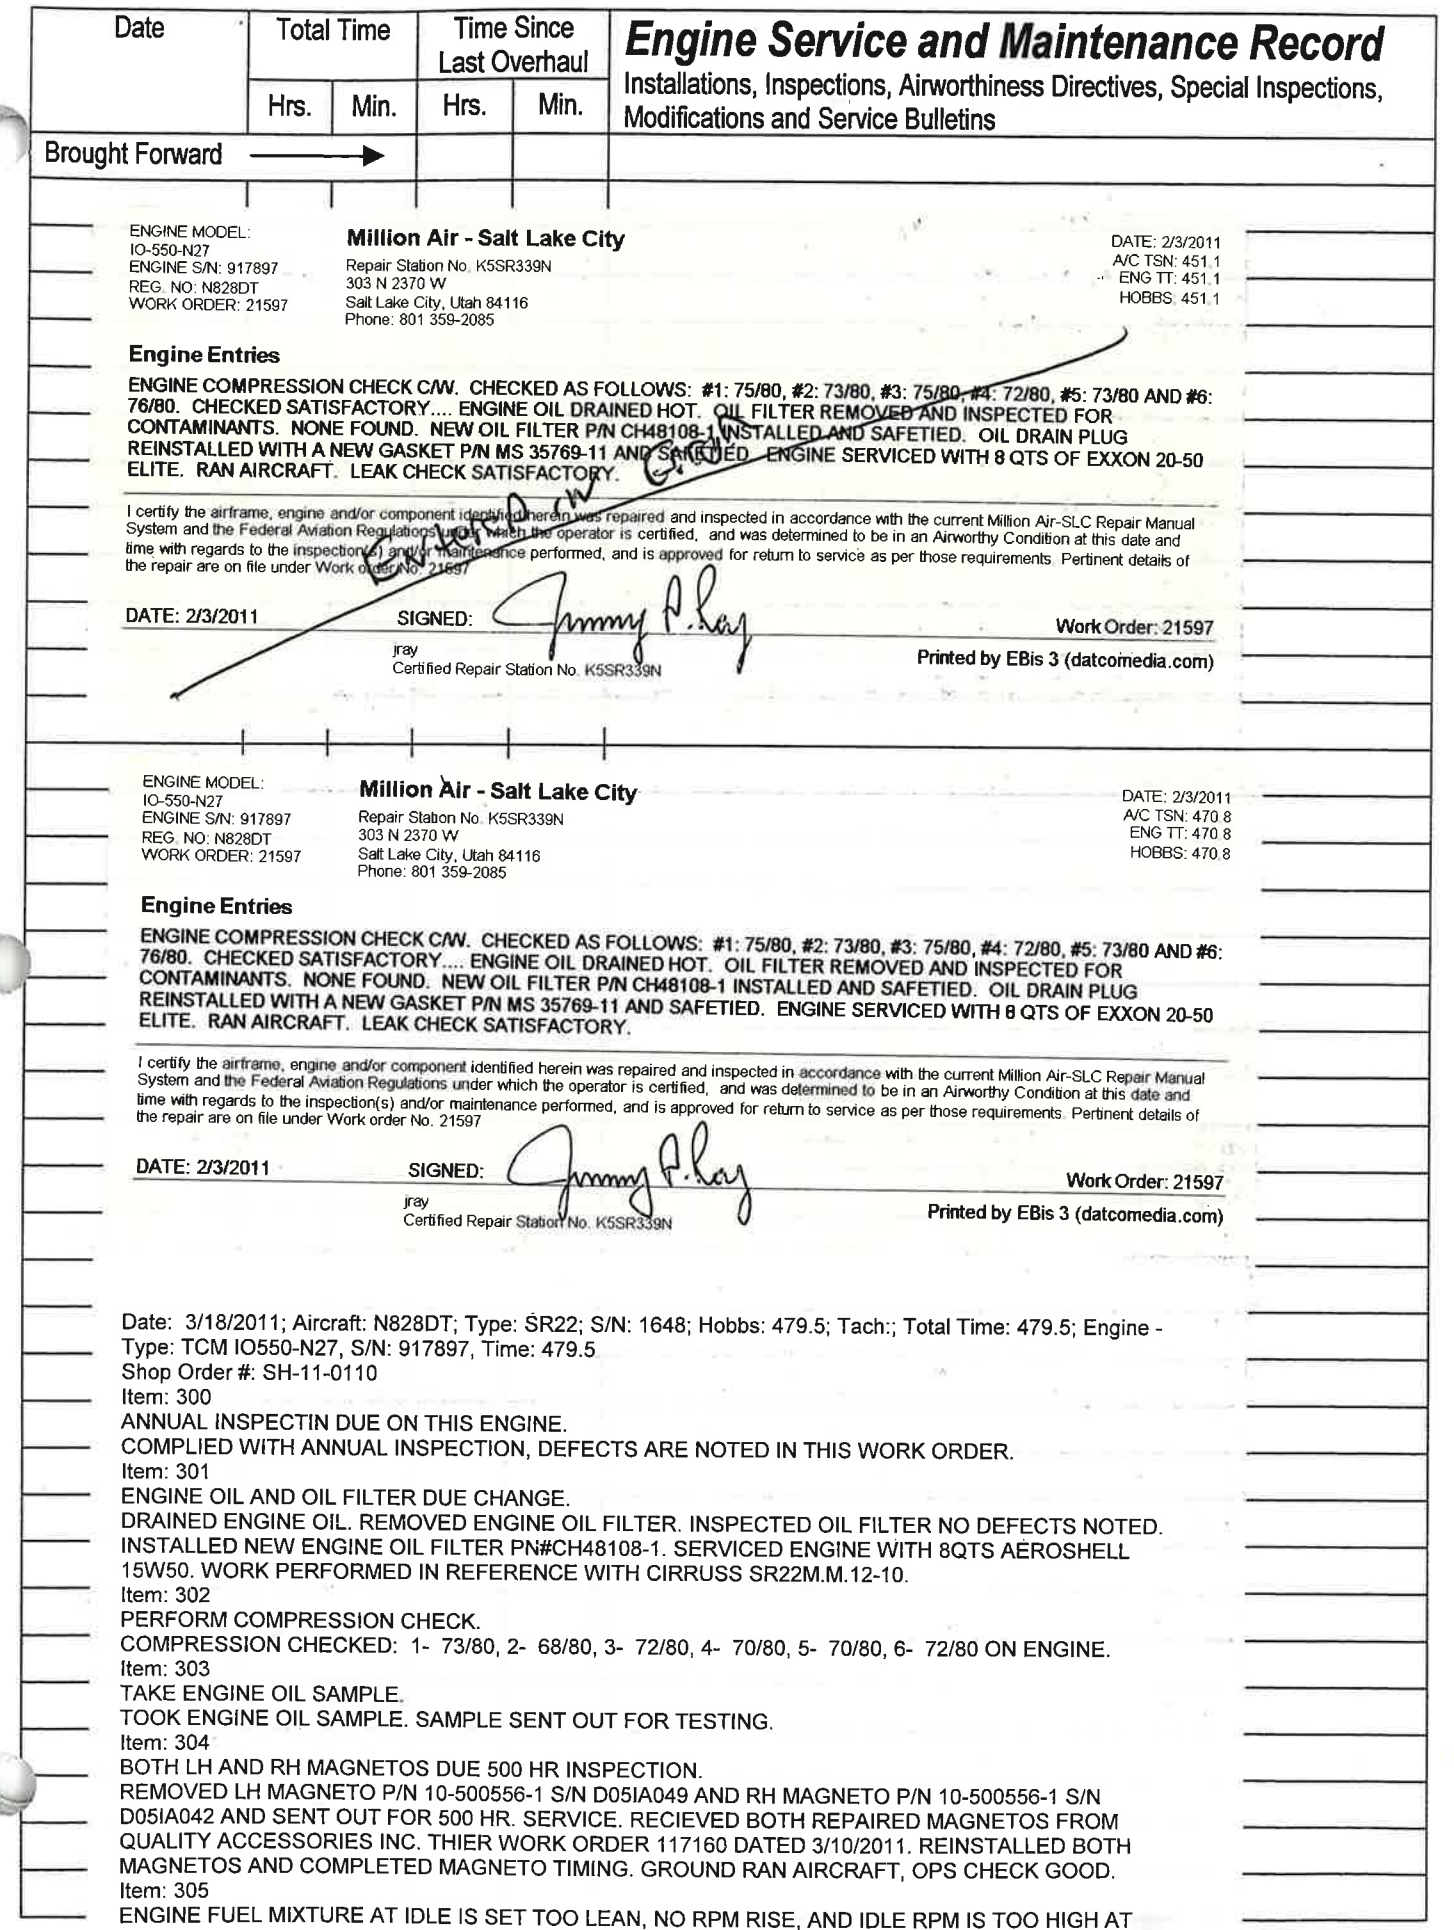 Date
Total Time
Time Since
Last Overhaul
Hrs.
Min.
Hrs.
Min.
Engine Service and Maintenance Record
Installations, Inspections, Airworthiness Directives, Special Inspections,
Modifications and Service Bulletins
Brought Forward
ENGINE MODEL:
IO-550-N27
ENGINE S/N: 917897
REG. NO: N828DT
WORK ORDER: 21597
Million Air - Salt Lake City
Repair Station No. K5SR339N
303 N 2370 W
Salt Lake City, Utah 84116
Phone: 801 359-2085
DATE: 2/3/2011
A/C TSN: 451.1
ENG TT: 451.1
HOBBS: 451.1
Engine Entries
ENGINE COMPRESSION CHECK C/W. CHECKED AS FOLLOWS: #1: 75/80, #2: 73/80, #3: 75/80, #4: 72/80, #5: 73/80 AND #6:
76/80. CHECKED SATISFACTORY.... ENGINE OIL DRAINED HOT. OIL FILTER REMOVED AND INSPECTED FOR
CONTAMINANTS. NONE FOUND. NEW OIL FILTER P/N CH48108-1 INSTALLED AND SAFETIED. OIL DRAIN PLUG
REINSTALLED WITH A NEW GASKET P/N MS 35769-11 AND SAFETIED. ENGINE SERVICED WITH 8 QTS OF EXXON 20-50
ELITE. RAN AIRCRAFT. LEAK CHECK SATISFACTORY.
Entered in Error
I certify the airframe, engine and/or component identified herein was repaired and inspected in accordance with the current Million Air-SLC Repair Manual
System and the Federal Aviation Regulations under which the operator is certified, and was determined to be in an Airworthy Condition at this date and
time with regards to the inspection(s) and/or maintenance performed, and is approved for return to service as per those requirements. Pertinent details of
the repair are on file under Work order No. 21597
DATE: 2/3/2011
SIGNED: Jimmy P. Ray
Work Order: 21597
jray
Certified Repair Station No. K5SR339N
Printed by EBis 3 (datcomedia.com)
ENGINE MODEL:
IO-550-N27
ENGINE S/N: 917897
REG. NO: N828DT
WORK ORDER: 21597
Million Air - Salt Lake City
Repair Station No. K5SR339N
303 N 2370 W
Salt Lake City, Utah 84116
Phone: 801 359-2085
DATE: 2/3/2011
A/C TSN: 470.8
ENG TT: 470.8
HOBBS: 470.8
Engine Entries
ENGINE COMPRESSION CHECK C/W. CHECKED AS FOLLOWS: #1: 75/80, #2: 73/80, #3: 75/80, #4: 72/80, #5: 73/80 AND #6:
76/80. CHECKED SATISFACTORY.... ENGINE OIL DRAINED HOT. OIL FILTER REMOVED AND INSPECTED FOR
CONTAMINANTS. NONE FOUND. NEW OIL FILTER P/N CH48108-1 INSTALLED AND SAFETIED. OIL DRAIN PLUG
REINSTALLED WITH A NEW GASKET P/N MS 35769-11 AND SAFETIED. ENGINE SERVICED WITH 8 QTS OF EXXON 20-50
ELITE. RAN AIRCRAFT. LEAK CHECK SATISFACTORY.
I certify the airframe, engine and/or component identified herein was repaired and inspected in accordance with the current Million Air-SLC Repair Manual
System and the Federal Aviation Regulations under which the operator is certified, and was determined to be in an Airworthy Condition at this date and
time with regards to the inspection(s) and/or maintenance performed, and is approved for return to service as per those requirements. Pertinent details of
the repair are on file under Work order No. 21597
DATE: 2/3/2011
SIGNED: Jimmy P. Ray
Work Order: 21597
jray
Certified Repair Station No. K5SR339N
Printed by EBis 3 (datcomedia.com)
Date: 3/18/2011; Aircraft: N828DT; Type: SR22; S/N: 1648; Hobbs: 479.5; Tach:; Total Time: 479.5; Engine -
Type: TCM IO550-N27, S/N: 917897, Time: 479.5
Shop Order #: SH-11-0110
Item: 300
ANNUAL INSPECTIN DUE ON THIS ENGINE.
COMPLIED WITH ANNUAL INSPECTION, DEFECTS ARE NOTED IN THIS WORK ORDER.
Item: 301
ENGINE OIL AND OIL FILTER DUE CHANGE.
DRAINED ENGINE OIL. REMOVED ENGINE OIL FILTER. INSPECTED OIL FILTER NO DEFECTS NOTED.
INSTALLED NEW ENGINE OIL FILTER PN#CH48108-1. SERVICED ENGINE WITH 8QTS AEROSHELL
15W50. WORK PERFORMED IN REFERENCE WITH CIRRUSS SR22M.M.12-10.
Item: 302
PERFORM COMPRESSION CHECK.
COMPRESSION CHECKED: 1- 73/80, 2- 68/80, 3- 72/80, 4- 70/80, 5- 70/80, 6- 72/80 ON ENGINE.
Item: 303
TAKE ENGINE OIL SAMPLE.
TOOK ENGINE OIL SAMPLE. SAMPLE SENT OUT FOR TESTING.
Item: 304
BOTH LH AND RH MAGNETOS DUE 500 HR INSPECTION.
REMOVED LH MAGNETO P/N 10-500556-1 S/N D05IA049 AND RH MAGNETO P/N 10-500556-1 S/N
D05IA042 AND SENT OUT FOR 500 HR. SERVICE. RECIEVED BOTH REPAIRED MAGNETOS FROM
QUALITY ACCESSORIES INC. THIER WORK ORDER 117160 DATED 3/10/2011. REINSTALLED BOTH
MAGNETOS AND COMPLETED MAGNETO TIMING. GROUND RAN AIRCRAFT, OPS CHECK GOOD.
Item: 305
ENGINE FUEL MIXTURE AT IDLE IS SET TOO LEAN, NO RPM RISE, AND IDLE RPM IS TOO HIGH AT